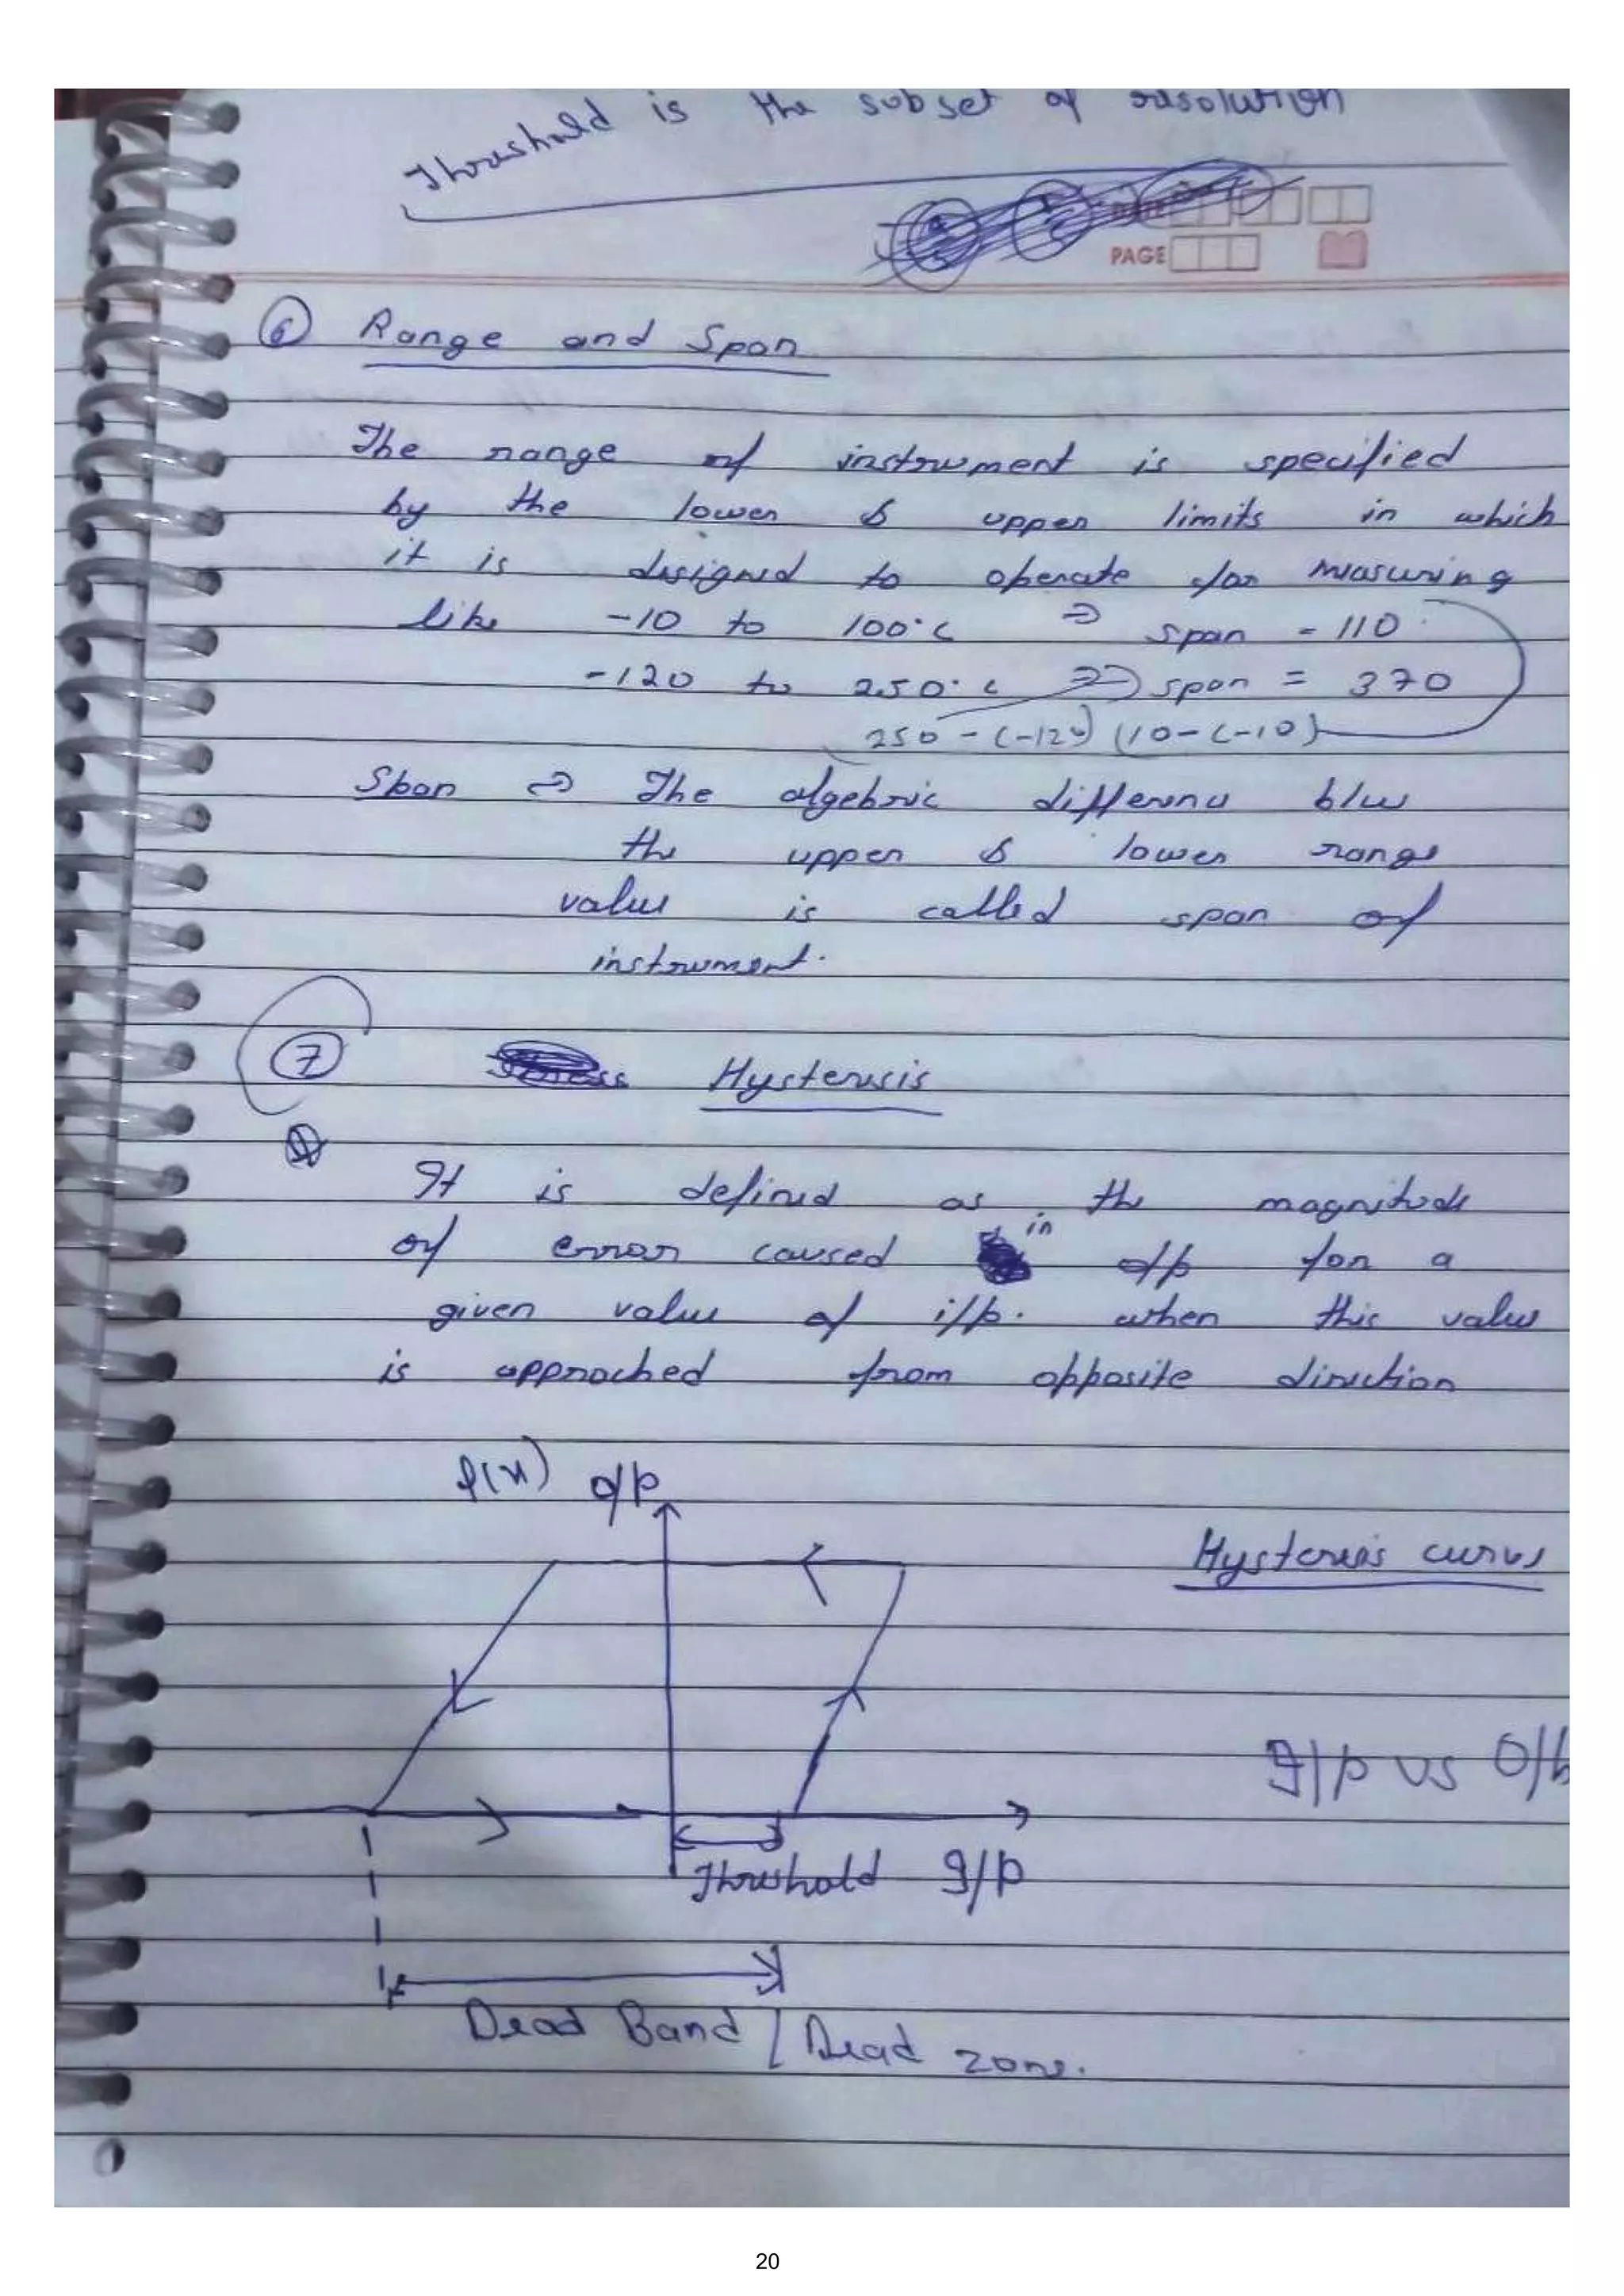 Threshold is the subset of resolution
PAGE
6 Range and Span
The range of instrument is specified
by the lower & upper limits in which
it is designed to operate for measuring
like -10 to 100°C ⇒ span = 110
-120 to 250°C ⇒ span = 370
250-(-120) (10-(-10)
Span ⇒ The algebric difference b/w
the upper & lower range
value is called span of
instrument.
7 Hysteresis
It is defined as the magnitude
of error caused in o/p for a
given value of i/p. when this value
is approched from opposite direction
f(x) o/p
Hysteresis curves
I/p vs O/p
Threshold I/p
Dead Band / Dead zone.
20